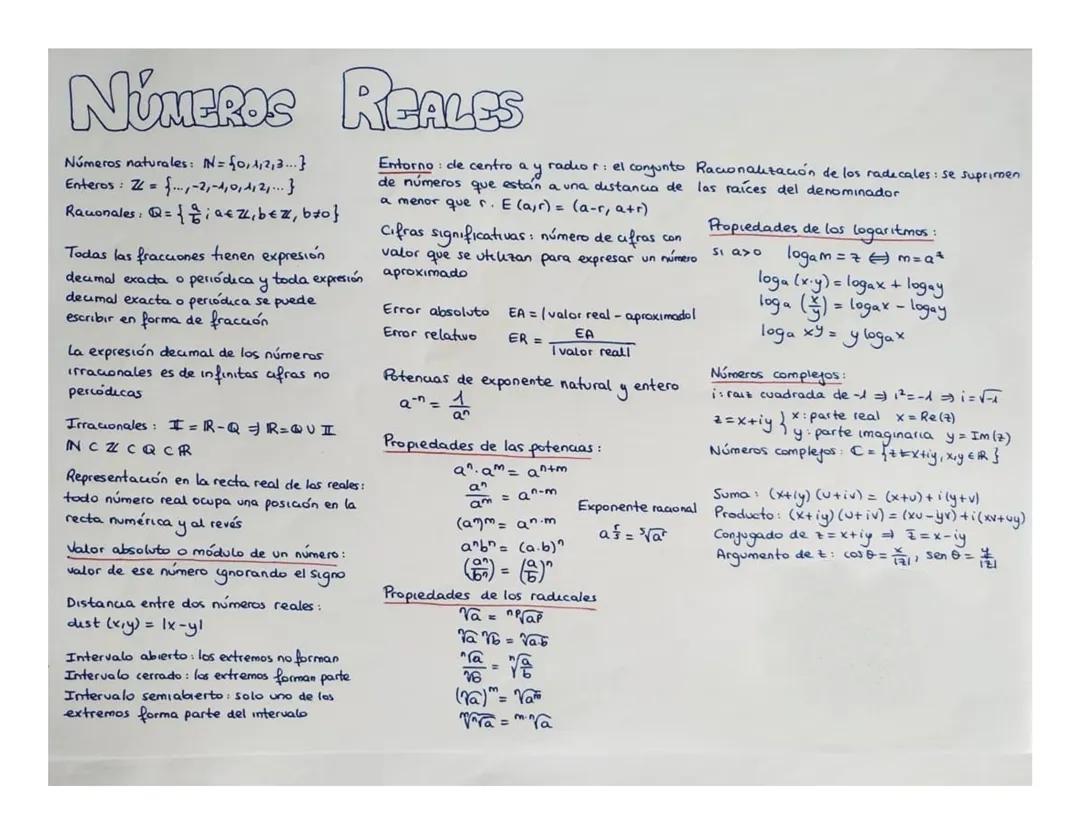 NÚMEROS REALES
Números naturales: ℕ = {0,1,2,3...}
Enteros: ℤ = {...,-2,-1,0,1,2,...}
Racionales: ℚ = {a/b ; a∈ℤ, b∈ℤ, b≠0}
Todas las fracciones tienen expresión
decimal exacta o periódica y toda expresión
decimal exacta o periódica se puede
escribir en forma de fracción
La expresión decimal de los números
irracionales es de infinitas cifras no
periódicas
Irracionales: 𝕀 = ℝ-ℚ ⇒ ℝ=ℚ∪𝕀
ℕ ⊂ ℤ ⊂ ℚ ⊂ ℝ
Representación en la recta real de los reales:
todo número real ocupa una posición en la
recta numérica y al revés
Valor absoluto o módulo de un número:
valor de ese número ignorando el signo
Distancia entre dos números reales:
dist (x,y) = |x-y|
Intervalo abierto: los extremos no forman
Intervalo cerrado: los extremos forman parte
Intervalo semiabierto: solo uno de los
extremos forma parte del intervalo
Entorno: de centro a y radio r: el conjunto
de números que están a una distancia de
a menor que r. E(a,r) = (a-r, a+r)
Cifras significativas: número de cifras con
valor que se utilizan para expresar un número
aproximado
Error absoluto EA = |valor real - aproximado|
Error relativo ER = EA / |valor real|
Potencias de exponente natural y entero
a⁻ⁿ = 1/aⁿ
Propiedades de las potencias:
aⁿ·aᵐ = aⁿ⁺ᵐ
aⁿ/aᵐ = aⁿ⁻ᵐ
(aⁿ)ᵐ = aⁿ·ᵐ
aⁿbⁿ = (a·b)ⁿ
(aⁿ/bⁿ) = (a/b)ⁿ
Exponente racional
a^(r/s) = ˢ√aʳ
Propiedades de los radicales
ⁿ√a = ⁿᵖ√aᵖ
ⁿ√a ⁿ√b = ⁿ√a·b
ⁿ√a / ⁿ√b = ⁿ√(a/b)
(ⁿ√a)ᵐ = ⁿ√aᵐ
ᵐ√ⁿ√a = ᵐ·ⁿ√a
Racionalización de los radicales: se suprimen
las raíces del denominador
Propiedades de los logaritmos:
si a>0 logₐm = z ⇔ m = aᶻ
logₐ(x·y) = logₐx + logₐy
logₐ(x/y) = logₐx - logₐy
logₐ xʸ = y logₐx
Números complejos:
i: raíz cuadrada de -1 ⇒ i²=-1 ⇒ i=√-1
z=x+iy { x: parte real x=Re(z)
y: parte imaginaria y=Im(z)
Números complejos: ℂ = {z=x+iy, x,y∈ℝ}
Suma: (x+iy) (u+iv) = (x+u)+i(y+v)
Producto: (x+iy) (u+iv) = (xu-yv)+i(xv+uy)
Conjugado de z=x+iy ⇒ z̄=x-iy
Argumento de z: cos θ = x/|z|, sen θ = y/|z|